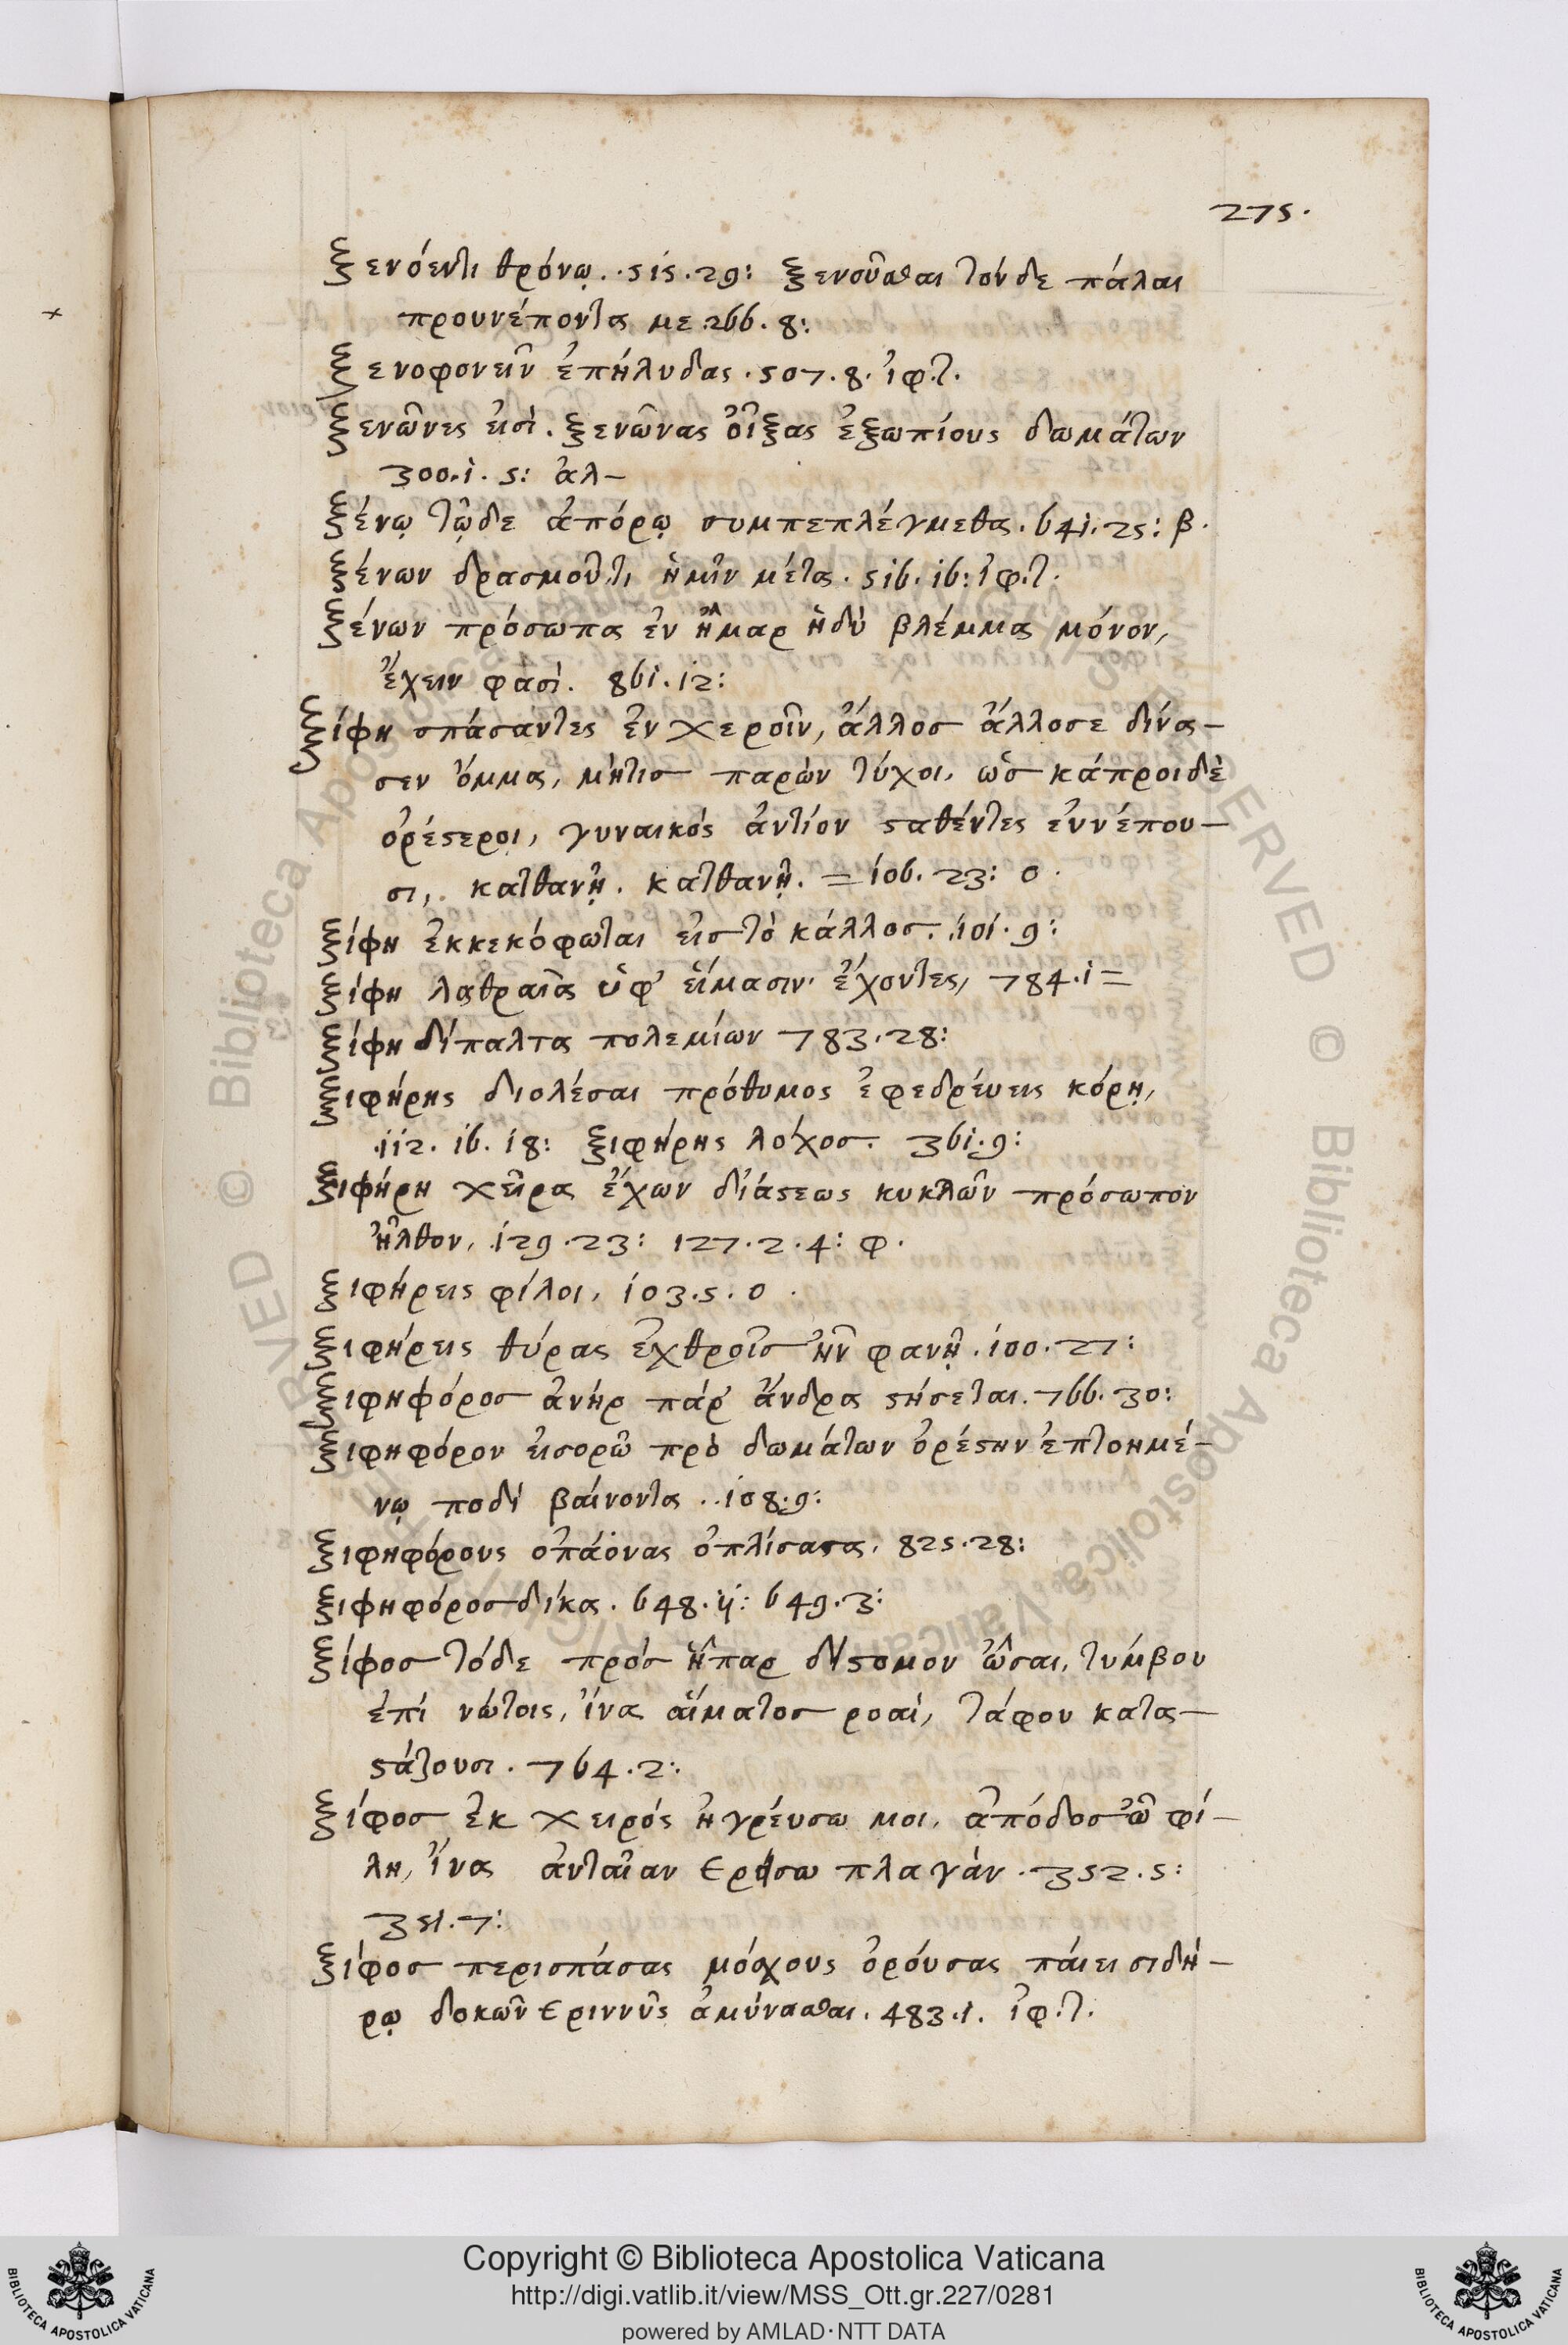 275.
ξενόεντι θρόνῳ. 515. 29: ξενοῦσθαι τόνδε πάλαι
προυνέποντα με 266. 8:
ξενοφονεῖν ἐπήλυδας. 507. 8. ἰφ.τ.
ξενῶνες εἰσὶ. ξενῶνας οἴξας ἐξωπίους δωμάτων
300. 1. 5: ἀλ—
ξένῳ τῷδε ἀπόρῳ συμπεπλέγμεθα. 641. 25: β.
ξένων δρασμοῦ.τι ἡμῖν μέτα. 516. 16: ἰφ.τ.
ξένων πρόσωπα ἐν ἦμαρ ἡδὺ βλέμμα μόνον,
ἔχειν φασὶ. 861. 12:
ξίφη σπάσαντες ἐν χεροῖν, ἄλλοσ ἄλλοσε δίνα—
σεν ὄμμα, μήτισ παρὼν τύχοι, ὡσ κάπροι δὲ
ὀρέστεροι, γυναικός ἀντίον σταθέντες ἐννέπου—
σι, κατθανῇ. κατθανῇ. = 106. 23: ο.
ξίφη ἐκκεκόφωται εἰσ τὸ κάλλοσ. 101. 9:
ξίφη λαθραῖα ὑφ' εἵμασιν ἔχοντες, 784. 1 =
ξίφη δίπαλτα πολεμίων 783. 28:
ξιφήρης διολέσαι πρόθυμος ἐφεδρεύεις κόρῃ,
112. 16. 18: ξιφήρης λόχοσ. 361. 9:
ξιφήρη χεῖρα ἔχων διάστεως κυκλῶν πρόσωπον
ἦλθον, 129. 23: 127. 2. 4: φ.
ξιφήρεις φίλοι, 103. 5. ο.
ξιφήρεις θύρας ἐχθροῖσ ἢν φανῇ. 100. 27:
ξιφηφόροσ ἀνήρ πάρ' ἄνδρα στήσεται. 766. 30:
ξιφηφόρον εἰσορῶ πρὸ δωμάτων ὀρέστην ἐπτοημέ—
νῳ ποδὶ βαίνοντα. 108. 9:
ξιφηφόρους ὀπάονας ὁπλίσασα. 825. 28:
ξιφηφόροσ δίκα. 648. 11: 649. 3:
ξίφοσ τόδε πρόσ ἧπαρ δίστομον ὦσαι, τύμβου
ἐπί νώτοις, ἵνα αἵματοσ ροαὶ, τάφου κατα—
στάζουσι. 764. 2:
ξίφοσ ἐκ χειρός ἠγρεύσω μοι, ἀπόδοσ ὦ φί—
λη, ἵνα ἀνταῖαν ἐρείσω πλαγάν. 352. 5:
351. 7:
ξίφοσ περισπάσας μόσχους ὀρούσας παίει σιδή—
ρῳ δοκῶν ἐριννῦς ἀμύνασθαι. 483. 1. ἰφ.τ.
Copyright © Biblioteca Apostolica Vaticana
http://digi.vatlib.it/view/MSS_Ott.gr.227/0281
powered by AMLAD·NTT DATA
BIBLIOTECA APOSTOLICA VATICANA
BIBLIOTECA APOSTOLICA VATICANA